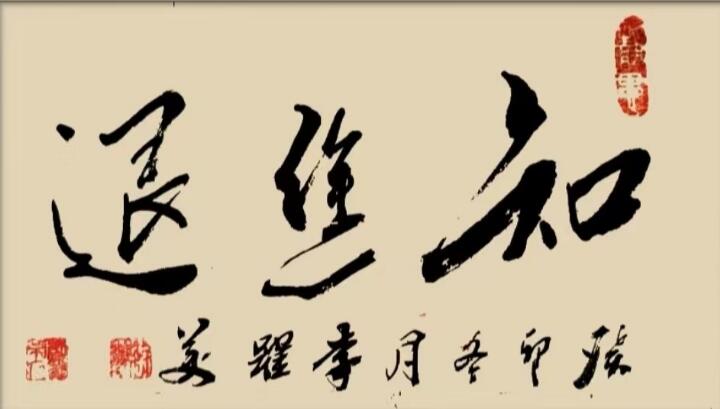 知進退
癸卯冬月李躍